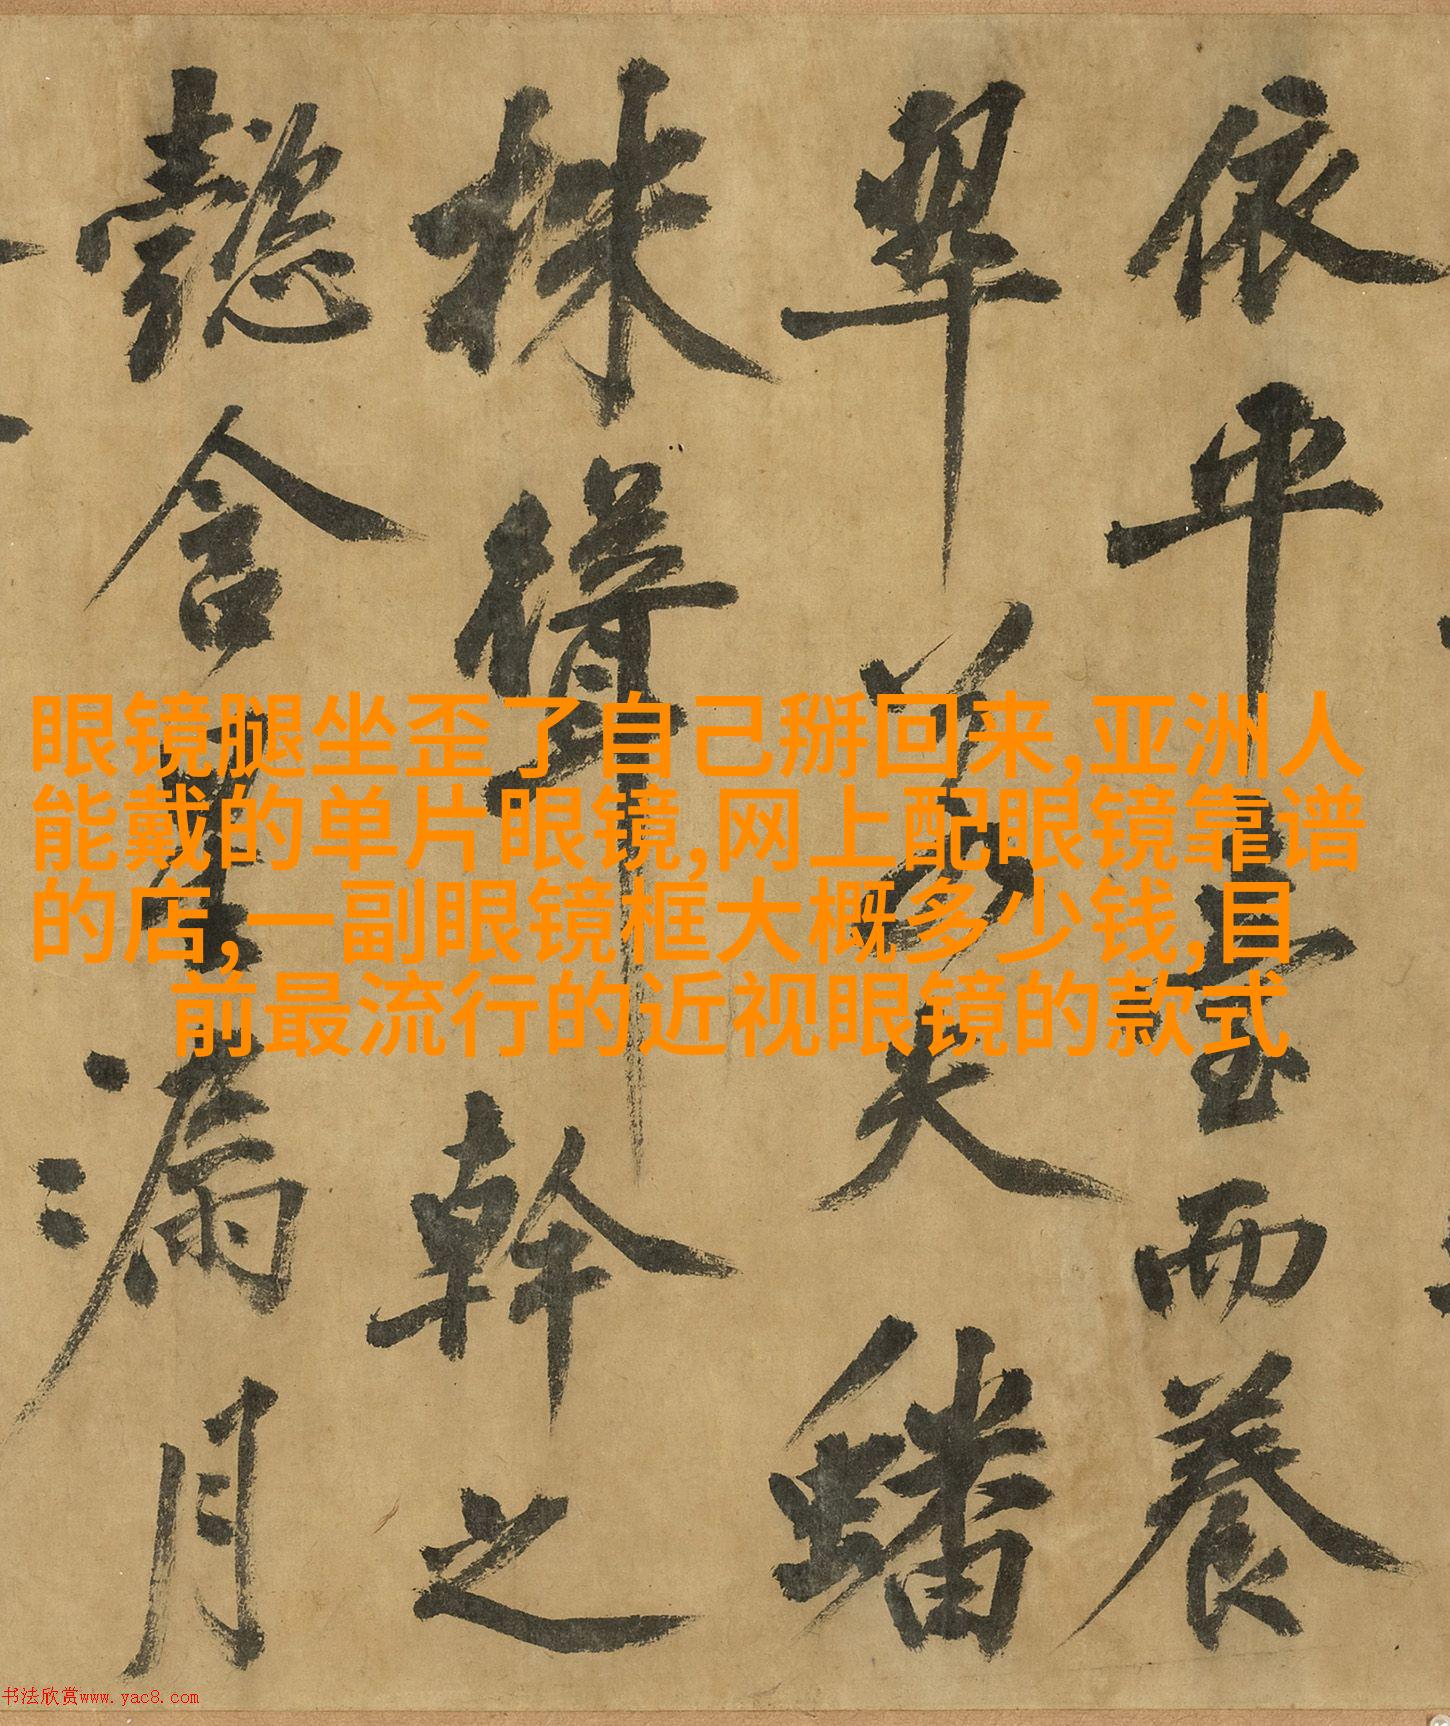 依平臺而養
翠若夫蟠
株聳幹之
懿含星漏月
眼镜腿坐歪了自己掰回来,亚洲人
能戴的单片眼镜,网上配眼镜靠谱
的店,一副眼镜框大概多少钱,目
前最流行的近视眼镜的款式
书法欣赏www.yac8.com